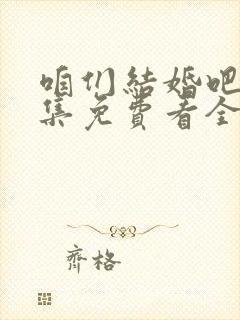 咱们结婚吧
集免费看全
齐格